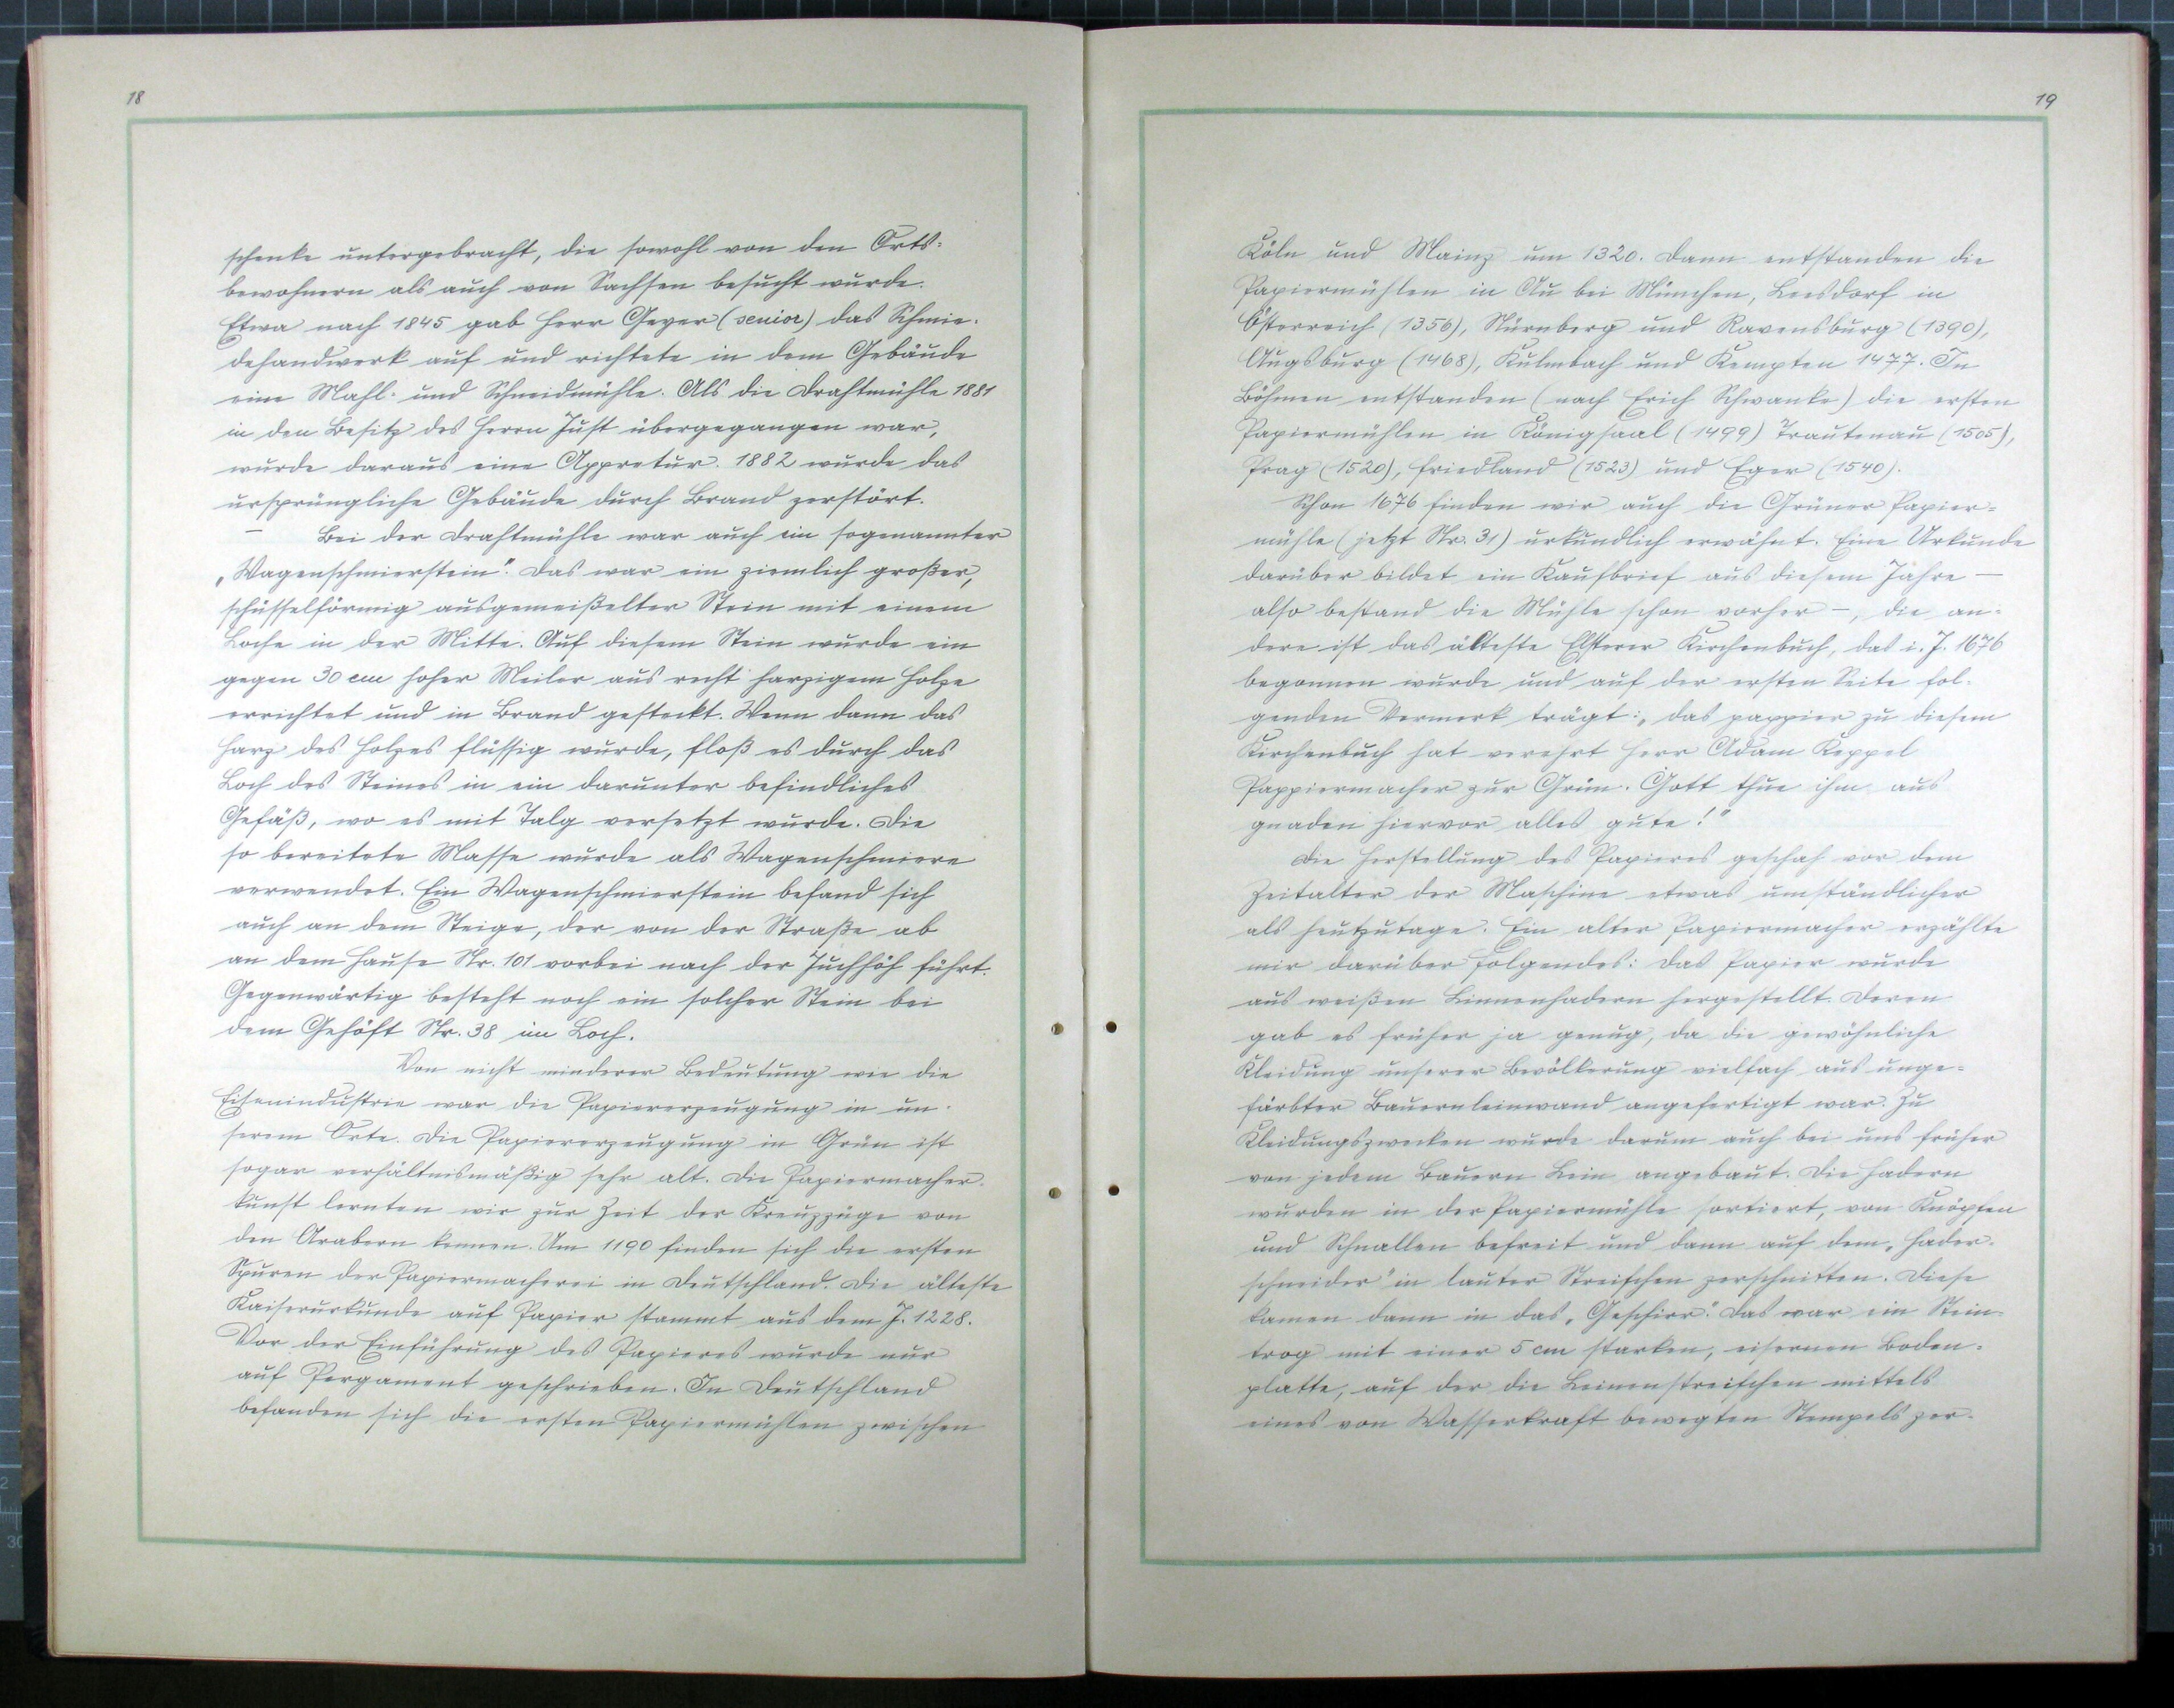 18
schenke untergebracht, die sowohl von den Orts-
bewohnern als auch von Sachsen besucht wurde.
Etwa nach 1845 gab Herr Geyer (senior) das Schmie-
dehandwerk auf und richtete in dem Gebäude
eine Mahl- und Schneidmühle. Als die Drahtmühle 1881
in den Besitz des Herrn Just übergegangen war,
wurde daraus eine Appretur. 1882 wurde das
ursprüngliche Gebäude durch Brand zerstört.
– Bei der Drahtmühle war auch ein sogenannter
„Wagenschmierstein“. Das war ein ziemlich großer,
schüsselförmig ausgemeißelter Stein mit einem
Loche in der Mitte. Auf diesem Stein wurde ein
gegen 30 cm hoher Meiler aus recht harzigem Holze
errichtet und in Brand gesteckt. Wenn dann das
Harz des Holzes flüssig wurde, floß es durch das
Loch des Steines in ein darunter befindliches
Gefäß, wo es mit Talg versetzt wurde. Die
so bereitete Masse wurde als Wagenschmiere
verwendet. Ein Wagenschmierstein befand sich
auch an dem Steige, der von der Straße ab
an dem Hause Nr. 101 vorbei nach der Juchhöh führt.
Gegenwärtig besteht noch ein solcher Stein bei
dem Gehöft Nr. 38 im Loch.
Von nicht minderer Bedeutung wie die
Eisenindustrie war die Papiererzeugung in un-
serem Orte. Die Papiererzeugung in Grün ist
sogar verhältnismäßig sehr alt. Die Papiermacher-
kunst lernten wir zur Zeit der Kreuzzüge von
den Arabern kennen. Um 1190 finden sich die ersten
Spuren der Papiermacherei in Deutschland. Die älteste
Kaiserurkunde auf Papier stammt aus dem J. 1228.
Vor der Einführung des Papieres wurde nur
auf Pergament geschrieben. In Deutschland
befanden sich die ersten Papiermühlen zwischen
19
Köln und Mainz um 1320. Dann entstanden die
Papiermühlen in Au bei München, Leesdorf in
Österreich (1356), Nürnberg und Ravensburg (1390),
Augsburg (1468), Kulmbach und Kempten 1477. In
Böhmen entstanden (nach Erich Schwanke) die ersten
Papiermühlen in Königsaal (1499) Trautenau (1505),
Prag (1520), Friedland (1523) und Eger (1540).
Schon 1676 finden wir auch die Grüner Papier-
mühle (jetzt Nr. 31) urkundlich erwähnt. Eine Urkunde
darüber bildet ein Kaufbrief aus diesem Jahre –
also bestand die Mühle schon vorher –, die an-
dere ist das älteste Elsterer Kirchenbuch, das i. J. 1676
begonnen wurde und auf der ersten Seite fol-
genden Vermerk trägt: „das pappier zu diesem
Kirchenbuch hat verehrt Herr Adam Keppel
Pappiermacher zur Grün. Gott thue ihm aus
gnaden hiervor alles gute!“
Die Herstellung des Papieres geschah vor dem
Zeitalter der Maschine etwas umständlicher
als heutzutage. Ein alter Papiermacher erzählte
mir darüber Folgendes: Das Papier wurde
aus weißen Linnenhadern hergestellt. Deren
gab es früher ja genug, da die gewöhnliche
Kleidung unserer Bevölkerung vielfach aus unge-
färbter Bauernleinwand angefertigt war. Zu
Kleidungszwecken wurde darum auch bei uns früher
von jedem Bauern Lein angebaut. Die Hadern
wurden in der Papiermühle sortiert, von Knöpfen
und Schnallen befreit und dann auf dem „Hader-
schneider“ in lauter Streifchen zerschnitten. Diese
kamen dann in das „Geschirr“. Das war ein Stein-
trog mit einer 5 cm starken, eisernen Boden-
platte, auf der die Leinenstreifchen mittels
eines von Wasserkraft bewegten Stempels zer-